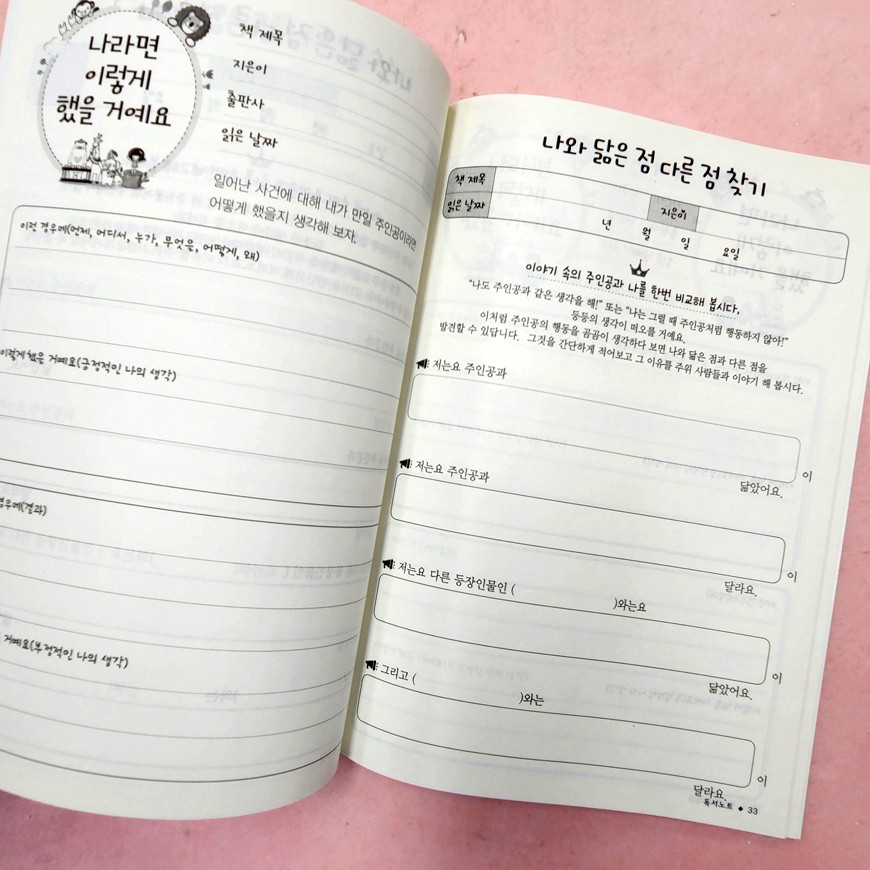 나라면
이렇게
했을 거예요
책 제목
지은이
출판사
읽은 날짜
일어난 사건에 대해 내가 만일 주인공이라면
어떻게 했을지 생각해 보자.
이런 경우에(언제, 어디서, 누가, 무엇을, 어떻게, 왜)
이렇게 했을 거예요(긍정적인 나의 생각)
경우에(결과)
거예요(부정적인 나의 생각)
나와 닮은 점 다른 점 찾기
책 제목 지은이
읽은 날짜 년 월 일 요일
이야기 속의 주인공과 나를 한번 비교해 봅시다.
“나도 주인공과 같은 생각을 해!” 또는 “나는 그럴 때 주인공처럼 행동하지 않아!”
등등의 생각이 떠오를 거예요.
이처럼 주인공의 행동을 곰곰이 생각하다 보면 나와 닮은 점과 다른 점을
발견할 수 있답니다. 그것을 간단하게 적어보고 그 이유를 주위 사람들과 이야기 해 봅시다.
저는요 주인공과
이
닮았어요.
저는요 주인공과
이
달라요.
저는요 다른 등장인물인 ( )와는요
이
닮았어요.
그리고 ( )와는
이
달라요.
독서노트 ◆ 33